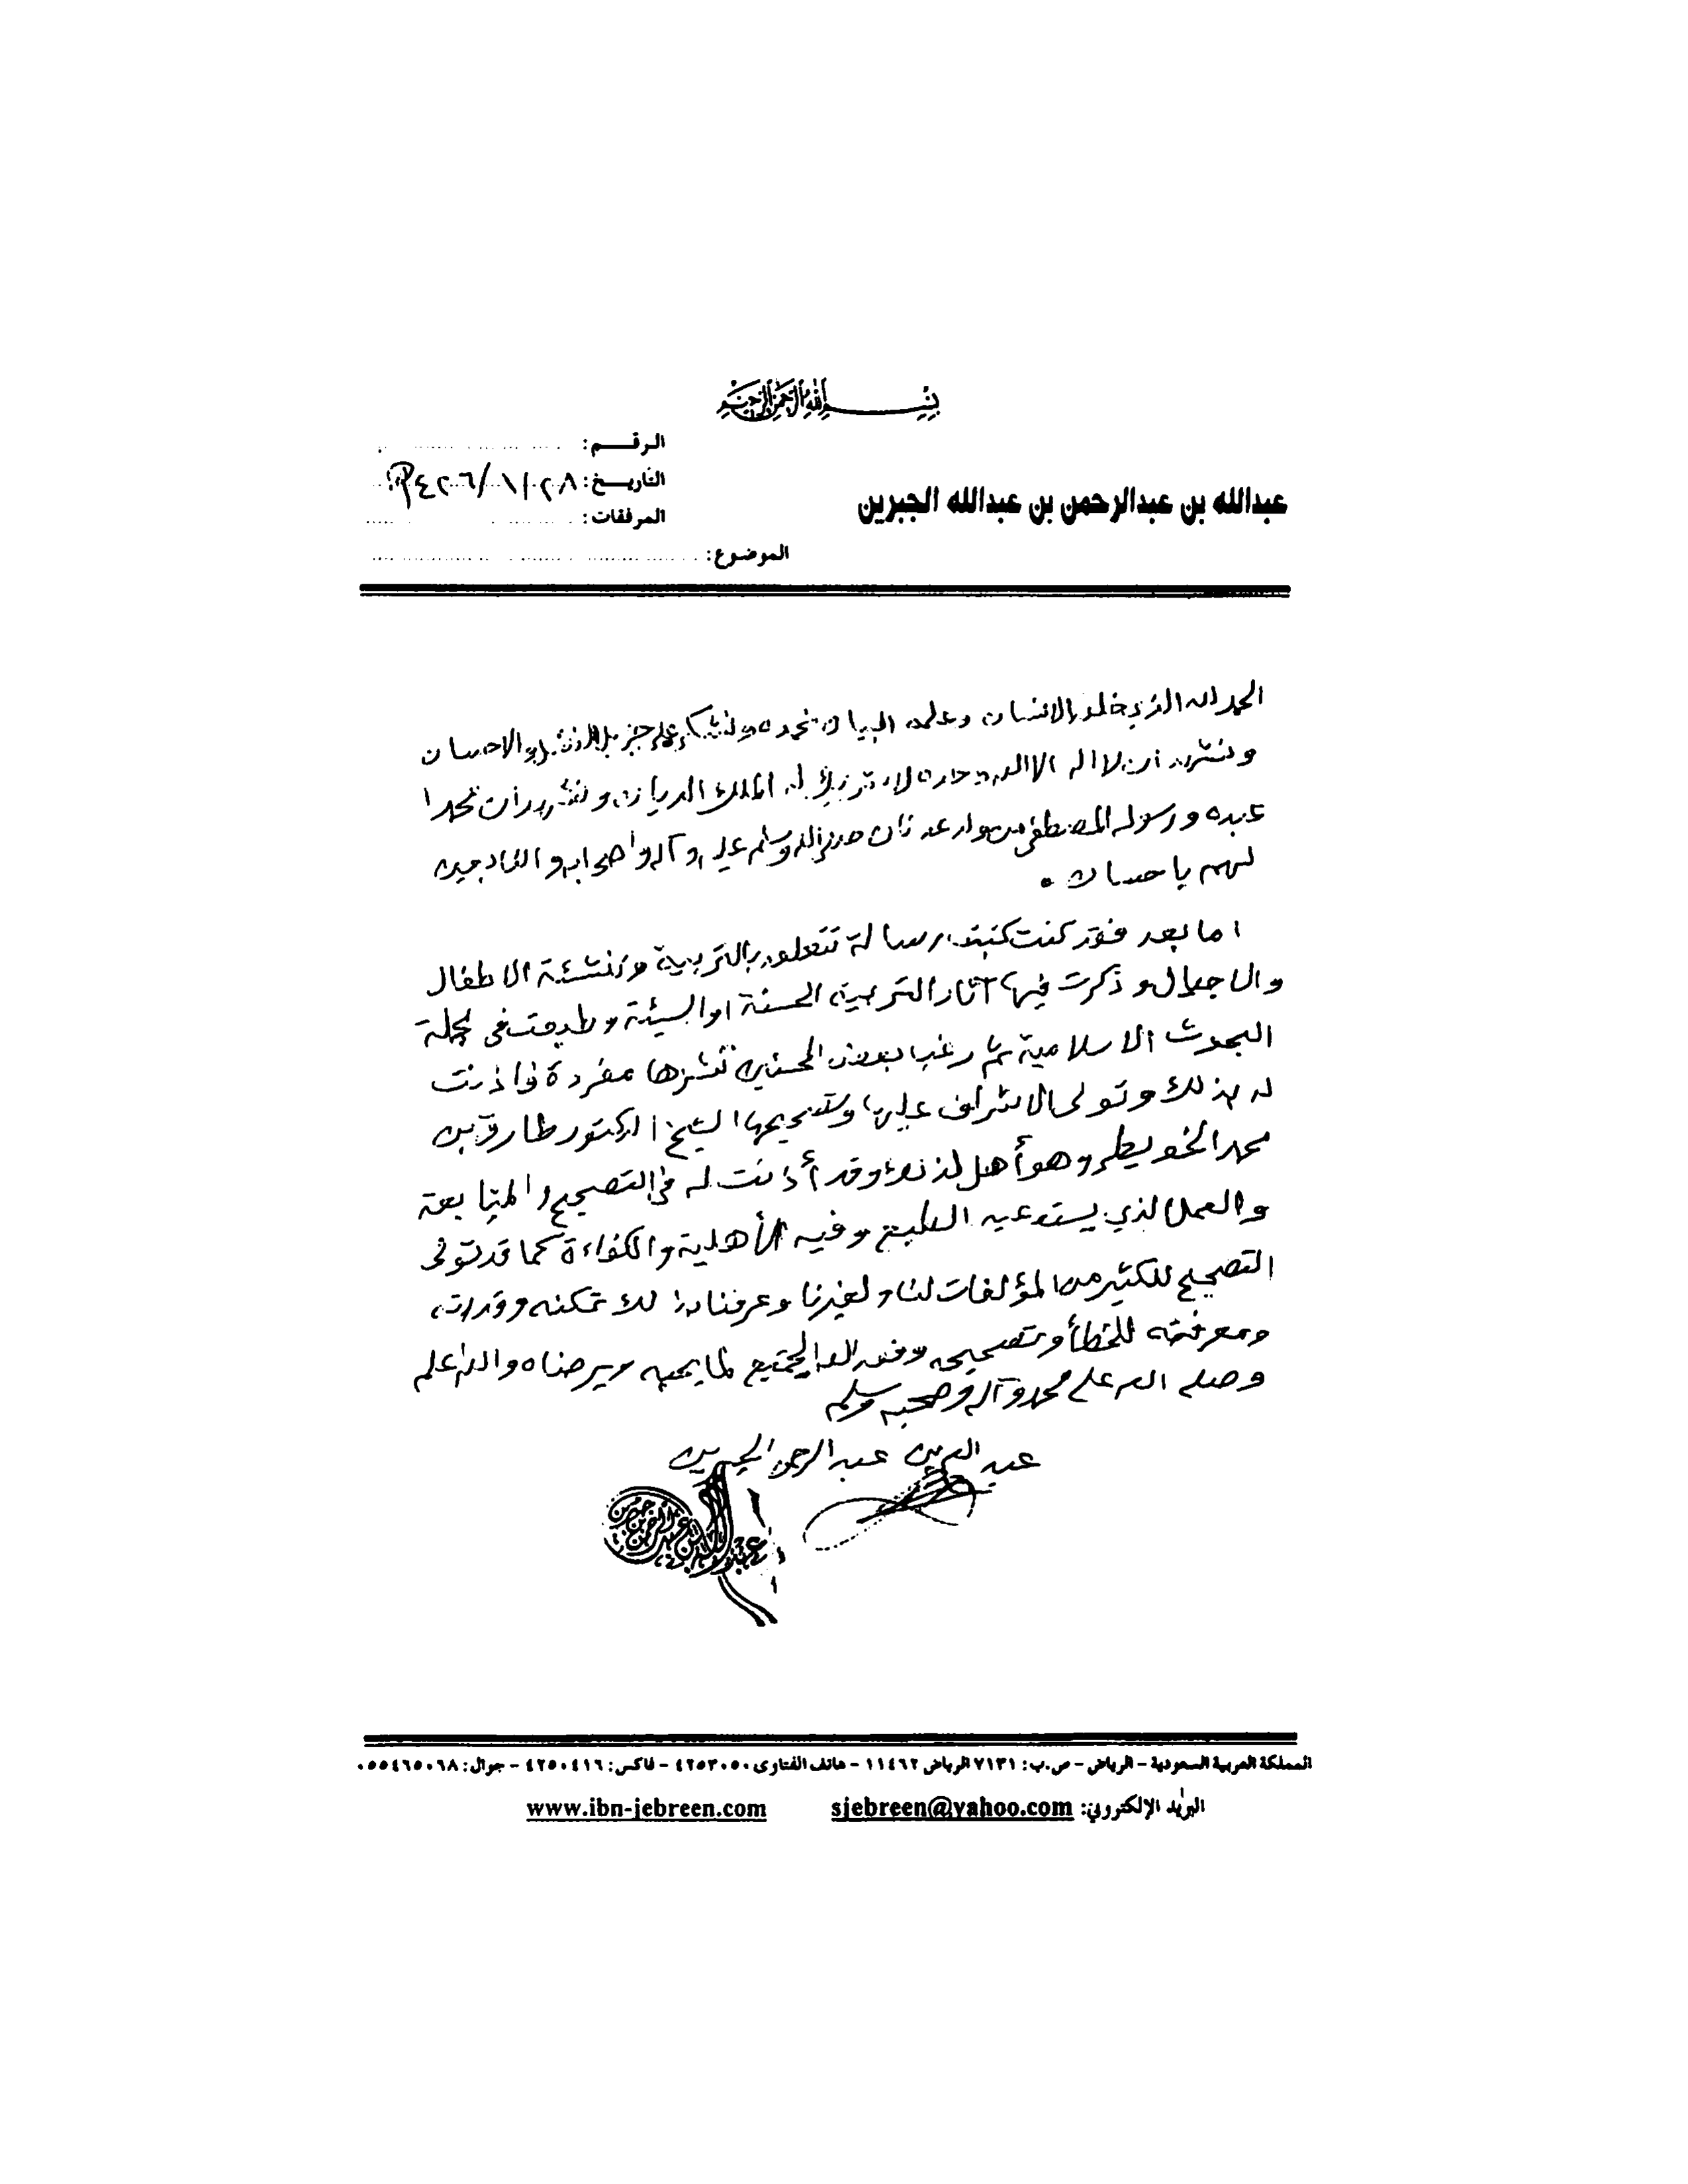 بسم الله الرحمن الرحيم
الرقـــم:
التاريـــخ: ٢٨/ ١/ ١٤٢٦هـ
عبدالله بن عبدالرحمن بن عبدالله الجبرين
المرفقات:
الموضوع:
الحمد لله الذي خلق الانسان وعلمه البيان نحمده ونشكره على جزيل الفضل والاحسان
ونشهد ان لا اله الا الله وحده لا شريك له الملك الديان ونشهد ان محمدا
عبده ورسوله المصطفى من ولد عدنان صلى الله وسلم عليه وآله وأصحابه والتابعين
لهم باحسان .
اما بعد فقد كنت كتبت رسالة تتعلق بالتربية وتنشئة الاطفال
والاجيال وذكرت فيها آثار التربية الحسنة او السيئة وطبعت في مجلة
البحوث الاسلامية ثم رغب بعض المحسنين نشرها مفردة فاذنت
له بذلك وتولى الاشراف عليها وتصحيحها الشيخ الدكتور طارق بن
محمد الخويطر وهو أهل لذلك وقد أذنت له في التصحيح والمتابعة
والعمل الذي يستدعيه الطبع وفيه الأهلية والكفاءة كما قد تولى
التصحيح للكثير من المؤلفات لنا ولغيرنا وعرفنا بذلك تمكنه وقدراته
ومعرفته للخطأ وتصحيحه وفق الله الجميع لما يحبه ويرضاه والله اعلم
وصلى الله على محمد وآله وصحبه وسلم
عبد الله بن عبد الرحمن الجبرين
عبدالله بن عبدالرحمن بن جبرين
المملكة العربية السعودية – الرياض – ص.ب: ٧١٣١ الرياض ١١٤٦٢ – هاتف الفتاوى ٤٢٥٣٠٥٠ – فاكس: ٤٢٥٠٤١٦ – جوال: ٠٥٥٤٦٥٠٦٨
البريد الإلكتروني: sjebreen@yahoo.com www.ibn-jebreen.com